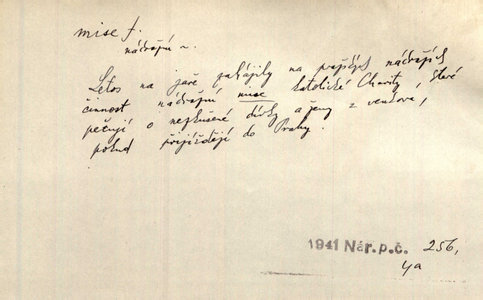 mise f.
nádražní ~.
Letos na jaře zahájily na pražských nádražích
činnost nádražní mise katolické Charity, které
pečují o nezkušené dívky a ženy z venkova,
pokud přijíždějí do Prahy.
1941 Nár. p. č. 256,
4a